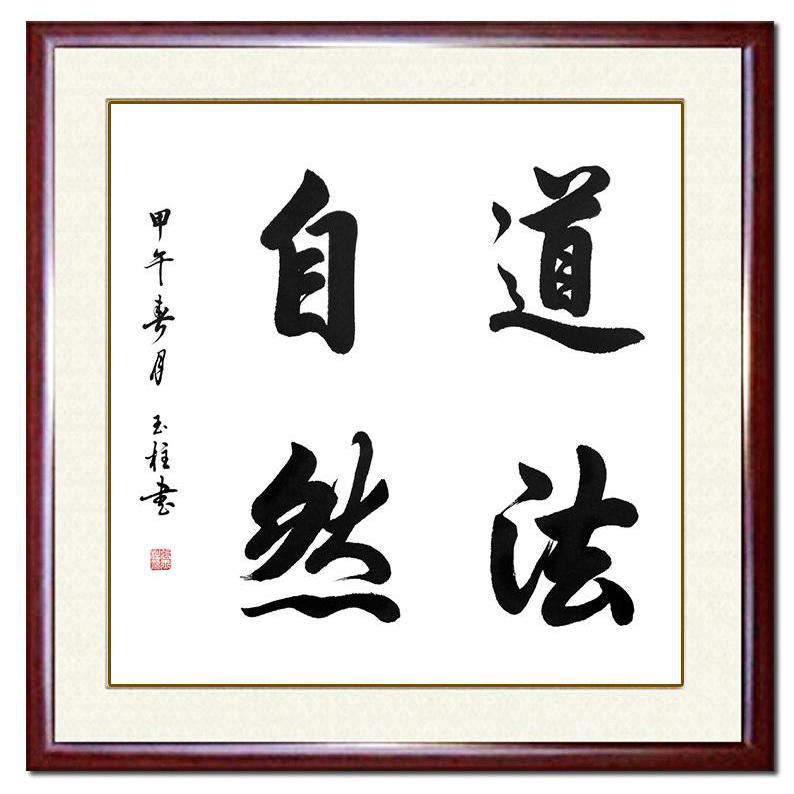 道法
自然
甲午春月 玉柱书